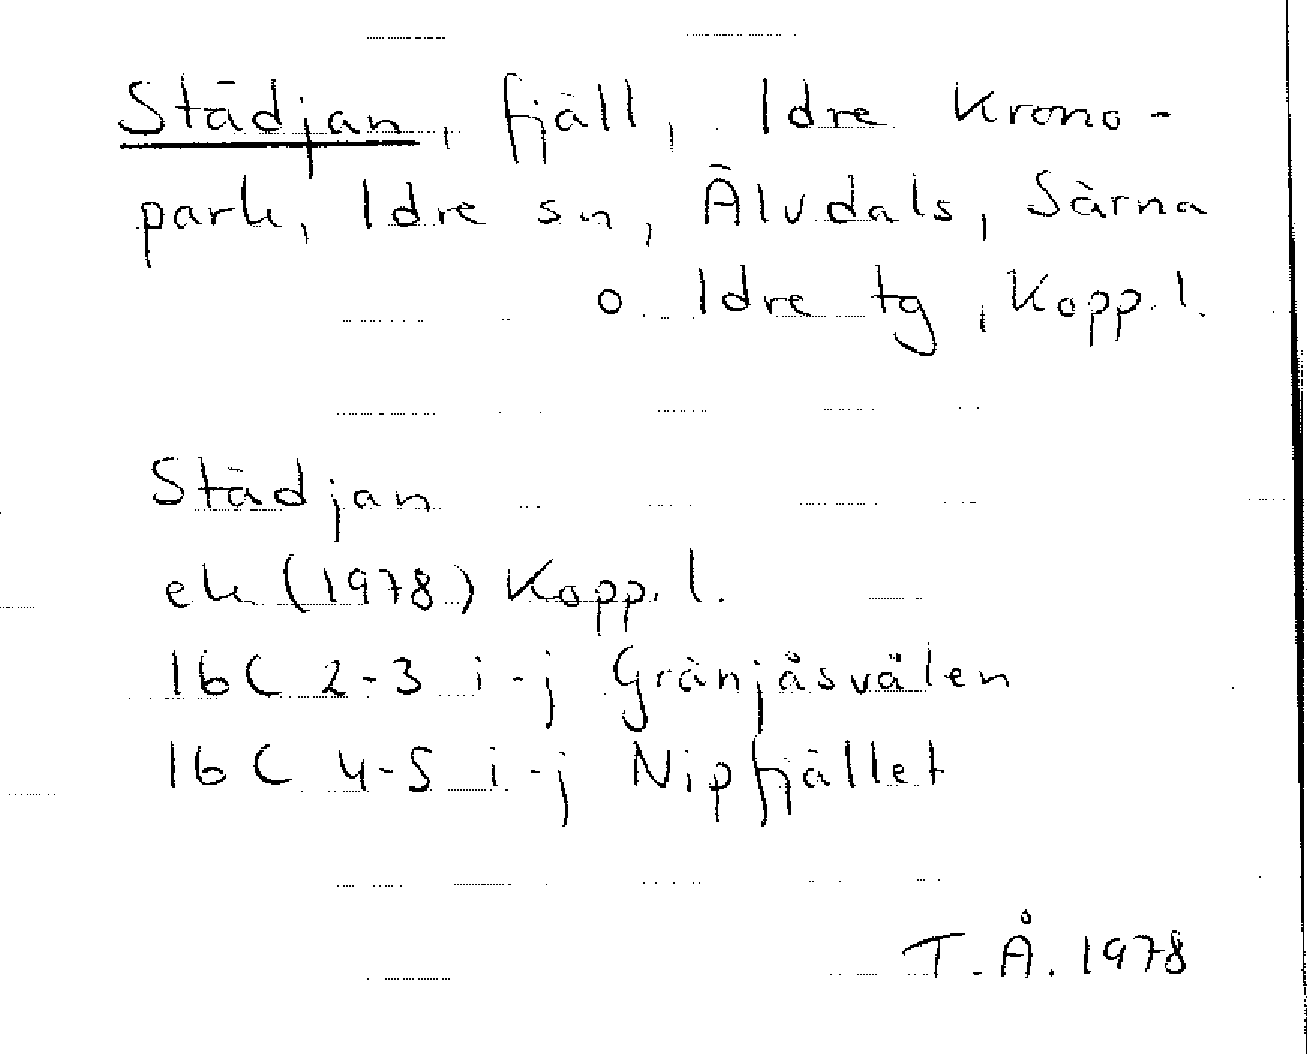 Städjan, fjäll, Idre Krono-
park, Idre sn, Älvdals, Särna
o. Idre tg, Kopp.l.
Städjan
ek (1978) Kopp.l.
16C 2-3 i-j Gränjåsvålen
16C 4-5 i-j Nipfjället
T.Å. 1978